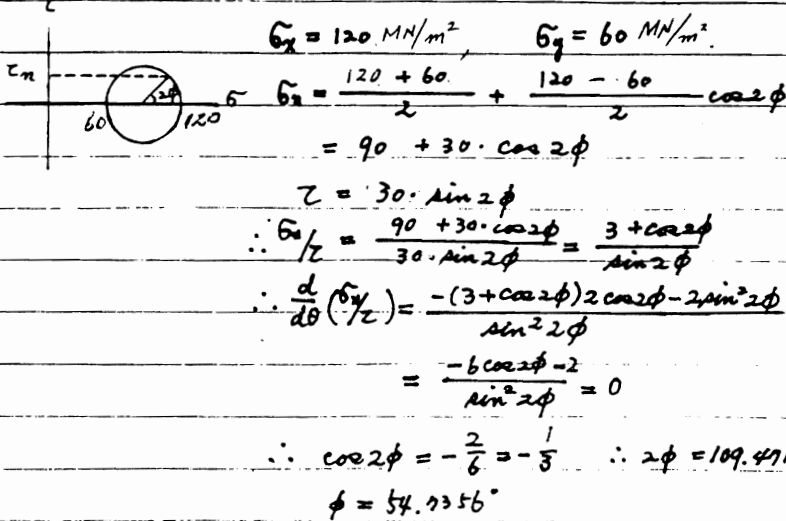 σx = 120 MN/m², σy = 60 MN/m².
τn
2φ
σ
60
120
σn = (120 + 60)/2 + (120 - 60)/2 cos2φ
= 90 + 30·cos 2φ
τ = 30·sin2φ
∴ σn/τ = (90 + 30·cos2φ)/(30·sin2φ) = (3 + cos2φ)/(sin2φ)
∴ d/dθ (σn/τ) = (-(3 + cos2φ)2cos2φ - 2sin²2φ)/(sin²2φ)
= (-6cos2φ - 2)/(sin²2φ) = 0
∴ cos2φ = -2/6 = -1/3 ∴ 2φ = 109.471
φ = 54.7356°